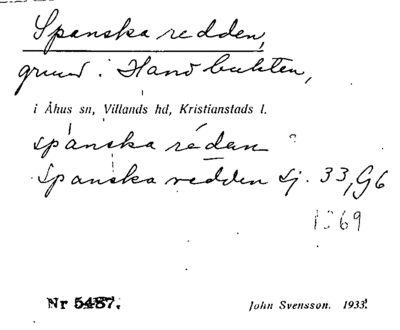 Spanska redden,
grund i Hanöbukten,
i Åhus sn, Villands hd, Kristianstads l.
spánska rédan
Spanska redden Sj. 33, G6
1969
Nr 5487.
John Svensson. 1933.